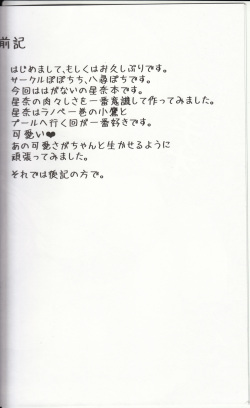 前記
はじめまして、もしくはお久しぶりです。
サークルぽぽちち、八尋ぽちです。
今回ははがないの星奈本です。
星奈の肉々しさを一番意識して作ってみました。
星奈はラノベ一巻の小鷹と
プールへ行く回が一番好きです。
可愛い❤
あの可愛さがちゃんと生かせるように
頑張ってみました。
それでは後記の方で。